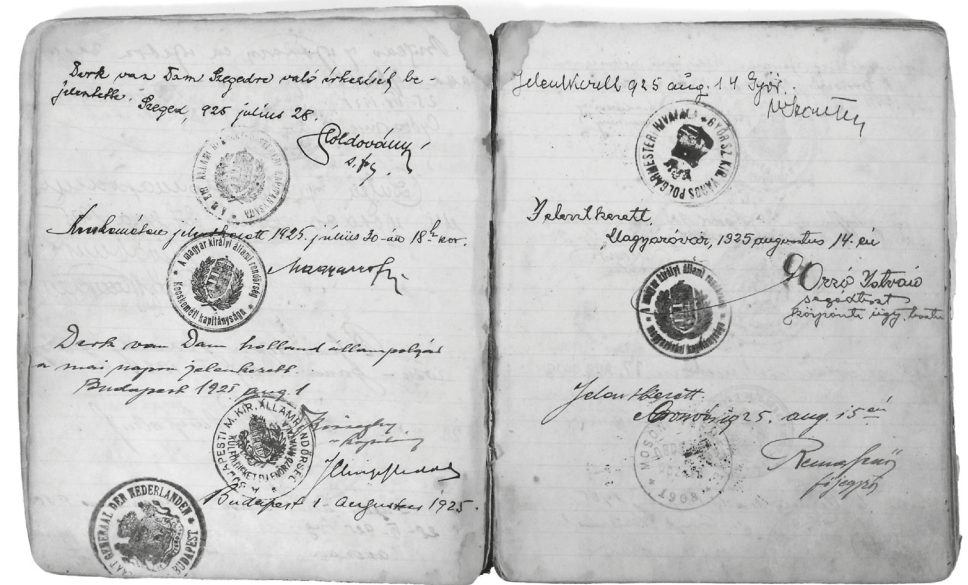 Derk van Dam Szegedre való érkezését be-
jelentette. Szeged, 925 július 28.
Holdoványi
A M. KIR. ÁLLAMI
Kecskeméten jelentkezett 1925. július 30-án 18h-kor.
A magyar királyi állami rendőrség
Kecskeméti kapitánysága
Derk van Dam holland állampolgár
a mai napon jelenkezett.
Budapest 1925 aug 1
BUDAPESTI M. KIR. ÁLLAMRENDŐRSÉG
Budapest 1 Augustus 1925.
GENERAAL DER NEDERLANDEN
BUDAPEST
Jelentkezett 925 aug. 14 Győr.
GYŐR SZ. KIR. VÁROS POLGÁRMESTER HIVATALA
Jelentkezett,
Magyaróvár, 1925 augusztus 14.-én
Orzó István
A magyar királyi állami rendőrség
Magyaróvári kapitánysága
központi ügy.
Jelentkezett
925. aug. 15 én
MOSON
1908
főjegyző